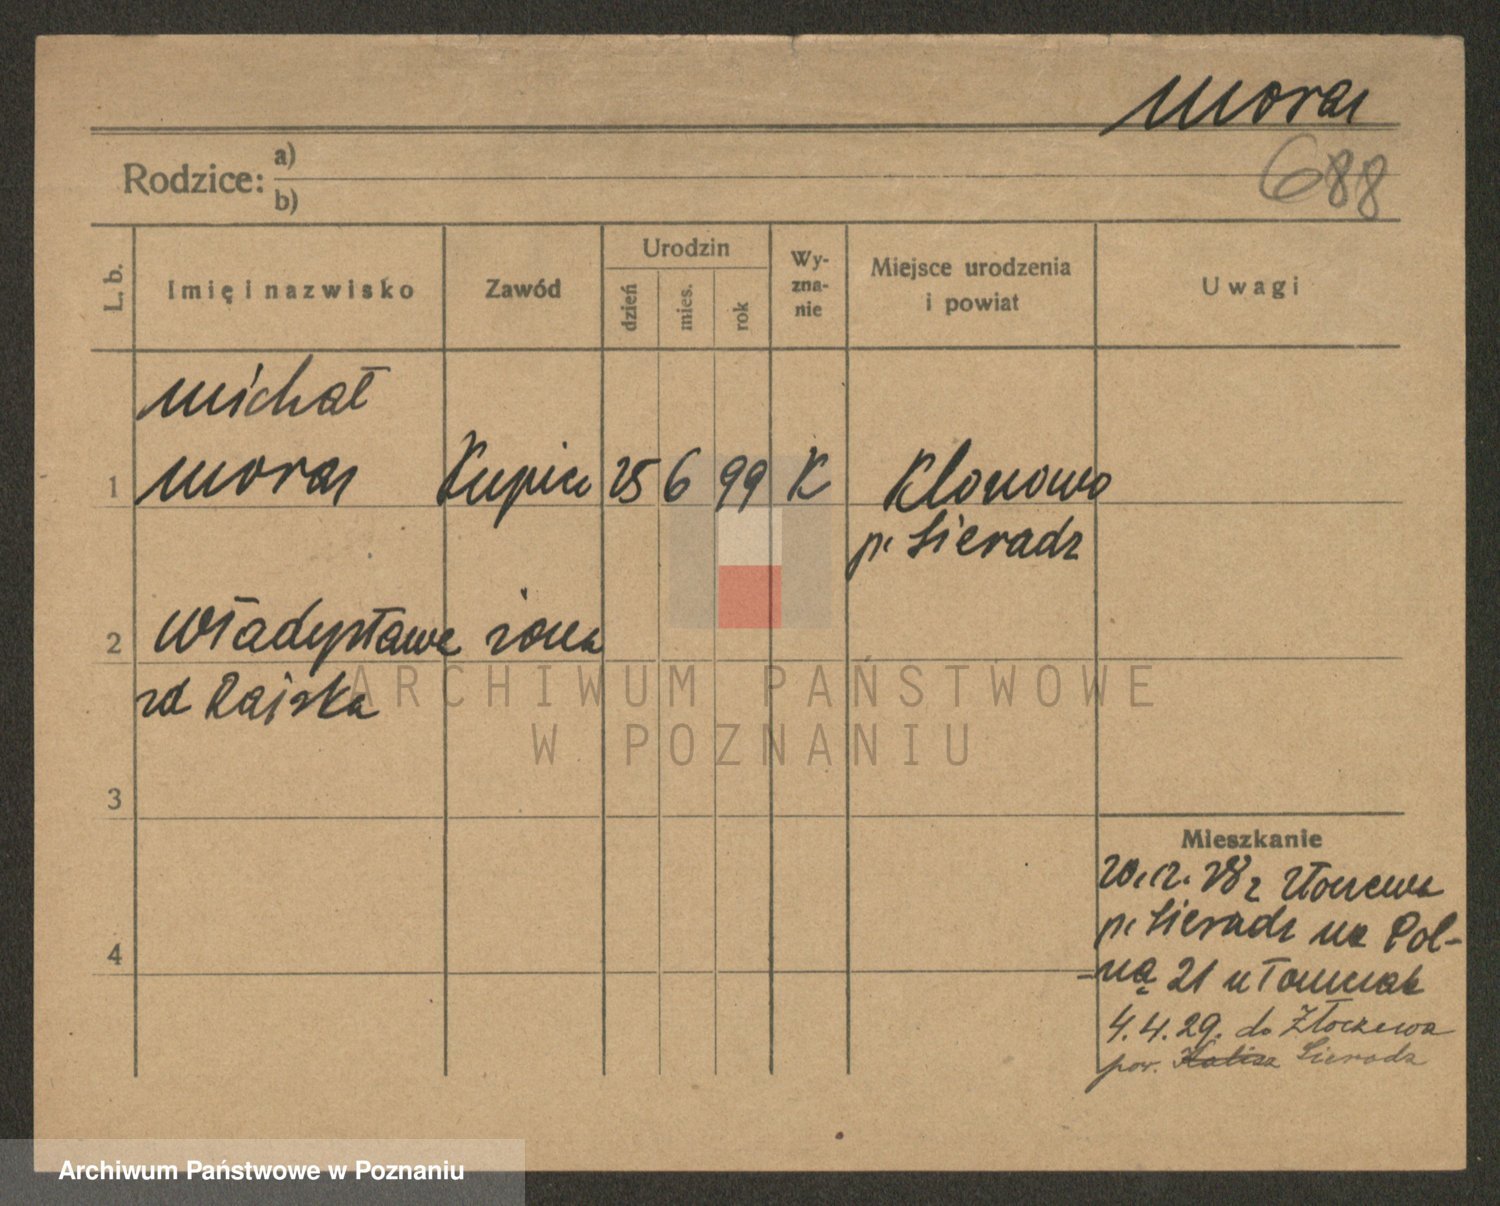 Moras
688
Rodzice: a)
b)
L. b.
Imię i nazwisko
Zawód
Urodzin
dzień
mies.
rok
Wy-
zna-
nie
Miejsce urodzenia
i powiat
Uwagi
Michał
1 Moras Kupiec 25 6 99 K Klonowo
p. Sieradz
2 Władysława żona
zd Rajska
3
4
Mieszkanie
20.12.28 z Złoczewa
p. Sieradz na Pol-
-ną 21 u Tomczak
4.4.29. do Złoczewa
pow. Kalisz Sieradz
ARCHIWUM PAŃSTWOWE
W POZNANIU
Archiwum Państwowe w Poznaniu